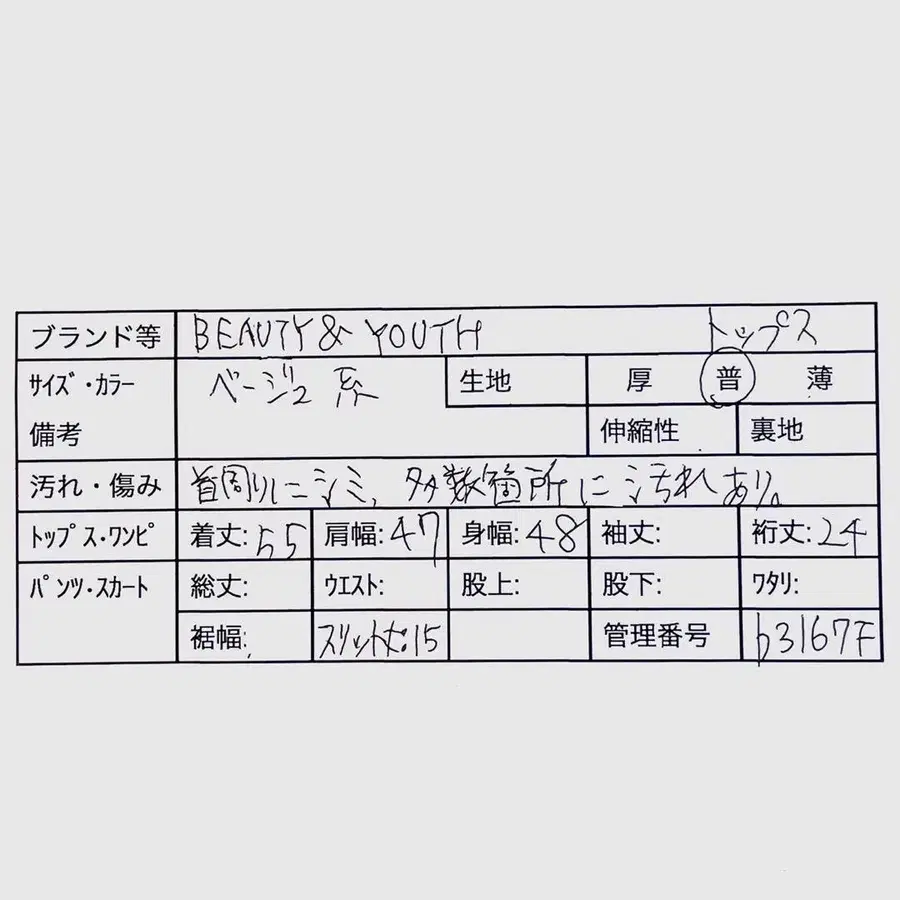 ブランド等 BEAUTY & YOUTH トップス
サイズ・カラー ベージュ系 生地 厚 普 薄
備考 伸縮性 裏地
汚れ・傷み 首周りにシミ、多数箇所に汚れあり。
トップス・ワンピ 着丈:55 肩幅:47 身幅:48 袖丈: 裄丈:24
パンツ・スカート 総丈: ウエスト: 股上: 股下: ワタリ:
裾幅: スリット丈:15 管理番号 b3167F